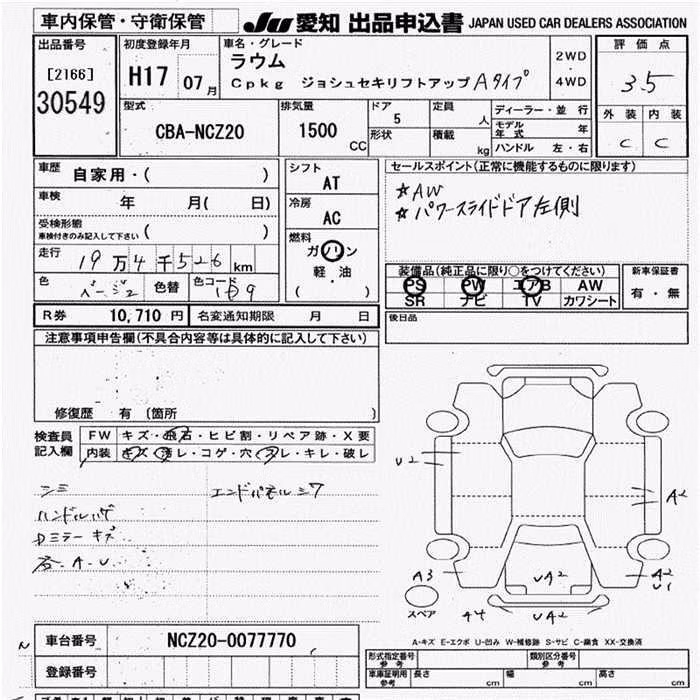 車内保管・守衛保管
JU 愛知 出品申込書 JAPAN USED CAR DEALERS ASSOCIATION
出品番号
[2166]
30549
初度登録年月
H17 07月
車名・グレード
ラウム
Cpkg ジョシュセキリフトアップ Aタイプ
2WD
4WD
評価点
3.5
外装 内装
C C
型式
CBA-NCZ20
排気量
1500
CC
ドア
5
形状
定員
人
積載
kg
ディーラー・並行
モデル年式 年
ハンドル 左・右
車歴
自家用・( )
車検
年 月( 日)
受検形態
車検付きのみ記入して下さい ( )
走行
19万4千526km
色
ベージュ
色替
色コード
シフト
AT
冷房
AC
燃料
ガソリン
軽・油
( )
セールスポイント(正常に機能するものに限ります)
☆AW
☆パワースライドドア左側
装備品(純正品に限り○をつけてください)
PS PW エアB AW
SR ナビ TV カワシート
新車保証書
有・無
R券 10,710 円 名変通知期限 月 日
後日品
注意事項申告欄(不具合内容等は具体的に記入して下さい)
修復歴 有 〔箇所 〕
検査員
記入欄
FW キズ・飛石・ヒビ割・リペア跡・X要
内装 キズ・汚レ・コゲ・穴・スレ・キレ・破レ
シミ
エンドパネルシワ
ハンドルハゲ
Dミラーキズ
A.U
U2
A2
A3
UA2
A2
U1
スペア
A4
UA2
A-キズ E-エクボ U-凹み W-補修跡 S-サビ C-腐食 XX-交換済
車台番号
NCZ20-0077770
登録番号
型式指定番号
参考
類別区分番号
参考
車庫証明用
参考
長さ cm 幅 cm 高さ cm